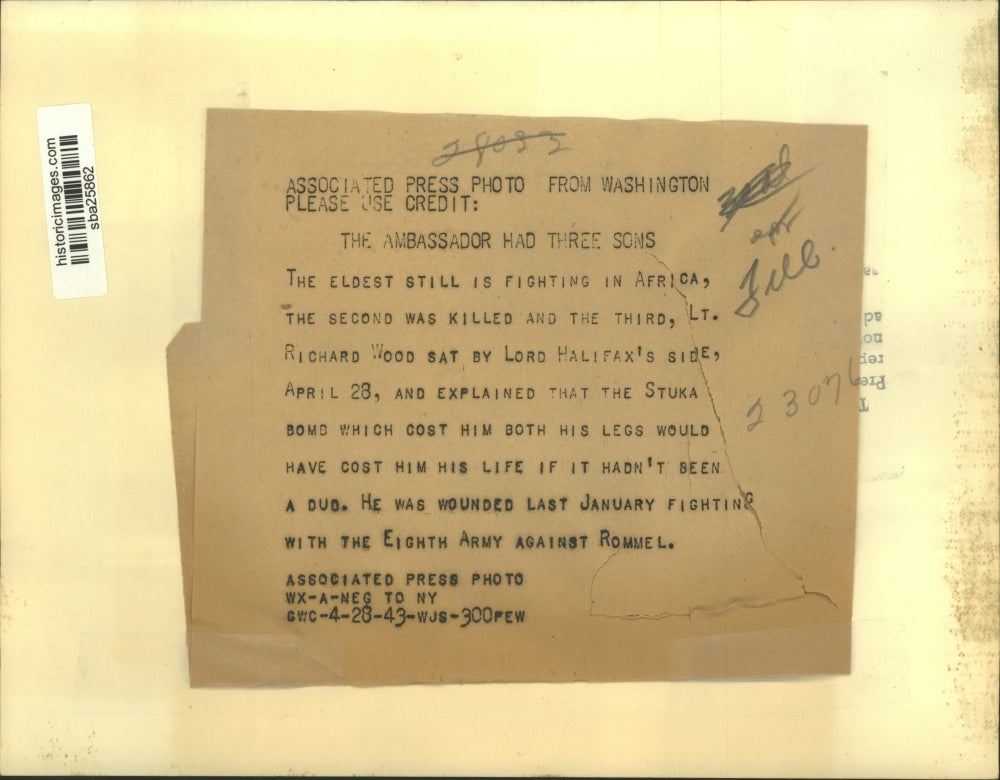 historicimages.com
sba25862
28032
ASSOCIATED PRESS PHOTO FROM WASHINGTON
PLEASE USE CREDIT:
THE AMBASSADOR HAD THREE SONS
THE ELDEST STILL IS FIGHTING IN AFRICA,
THE SECOND WAS KILLED AND THE THIRD, LT.
RICHARD WOOD SAT BY LORD HALIFAX'S SIDE,
APRIL 28, AND EXPLAINED THAT THE STUKA
BOMB WHICH COST HIM BOTH HIS LEGS WOULD
HAVE COST HIM HIS LIFE IF IT HADN'T BEEN
A DUD. HE WAS WOUNDED LAST JANUARY FIGHTING
WITH THE EIGHTH ARMY AGAINST ROMMEL.
ASSOCIATED PRESS PHOTO
WX-A-NEG TO NY
GWC-4-28-43-WJS-300PEW
23076